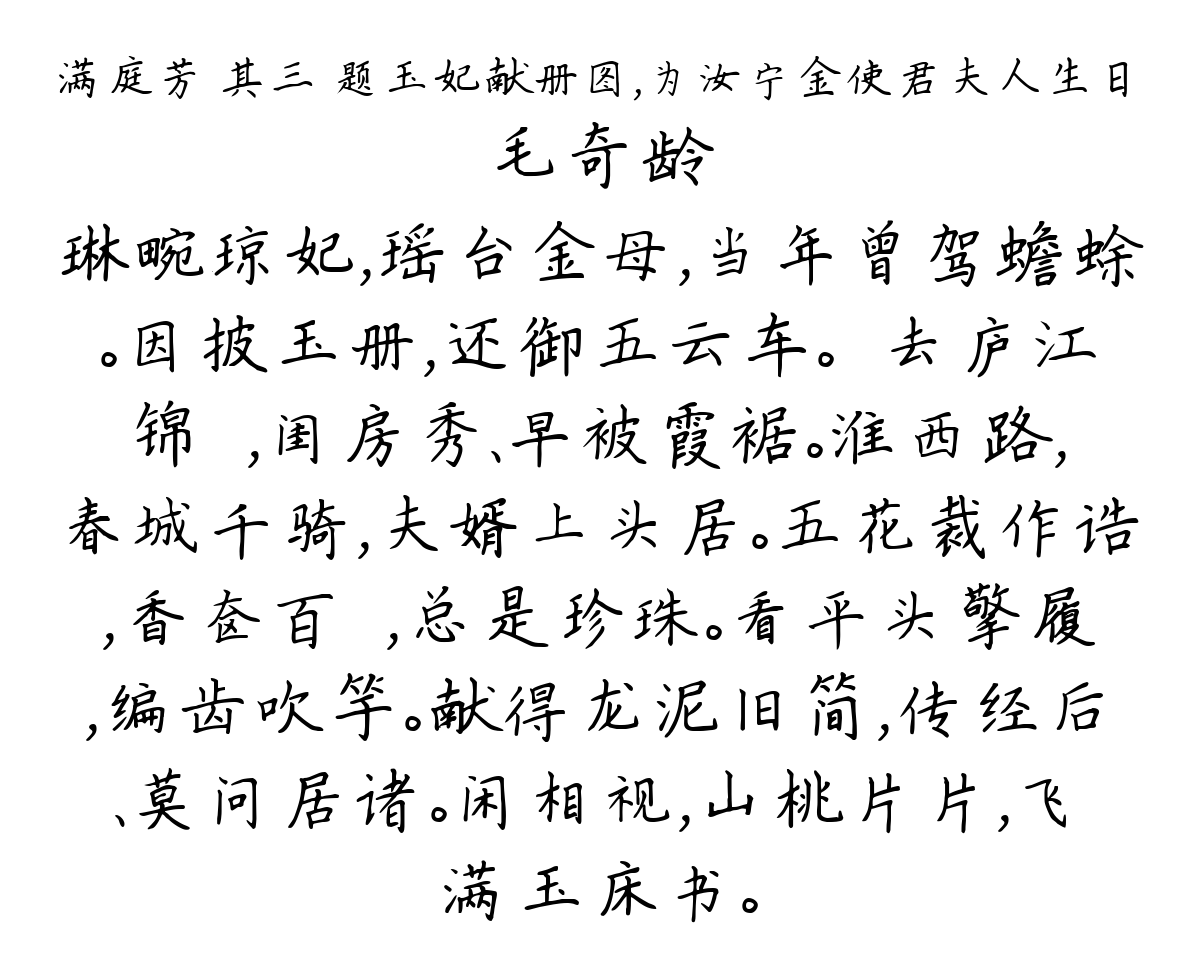 满庭芳 其三 题玉妃献册图,为汝宁金使君夫人生日
毛奇龄
琳畹琼妃,瑶台金母,当年曾驾蟾蜍
。因披玉册,还御五云车。 去庐江
锦 ,闺房秀、早被霞裾。淮西路,
春城千骑,夫婿上头居。五花裁作诰
,香奁百 ,总是珍珠。看平头擎履
,编齿吹竽。献得龙泥旧简,传经后
、莫问居诸。闲相视,山桃片片,飞
满玉床书。